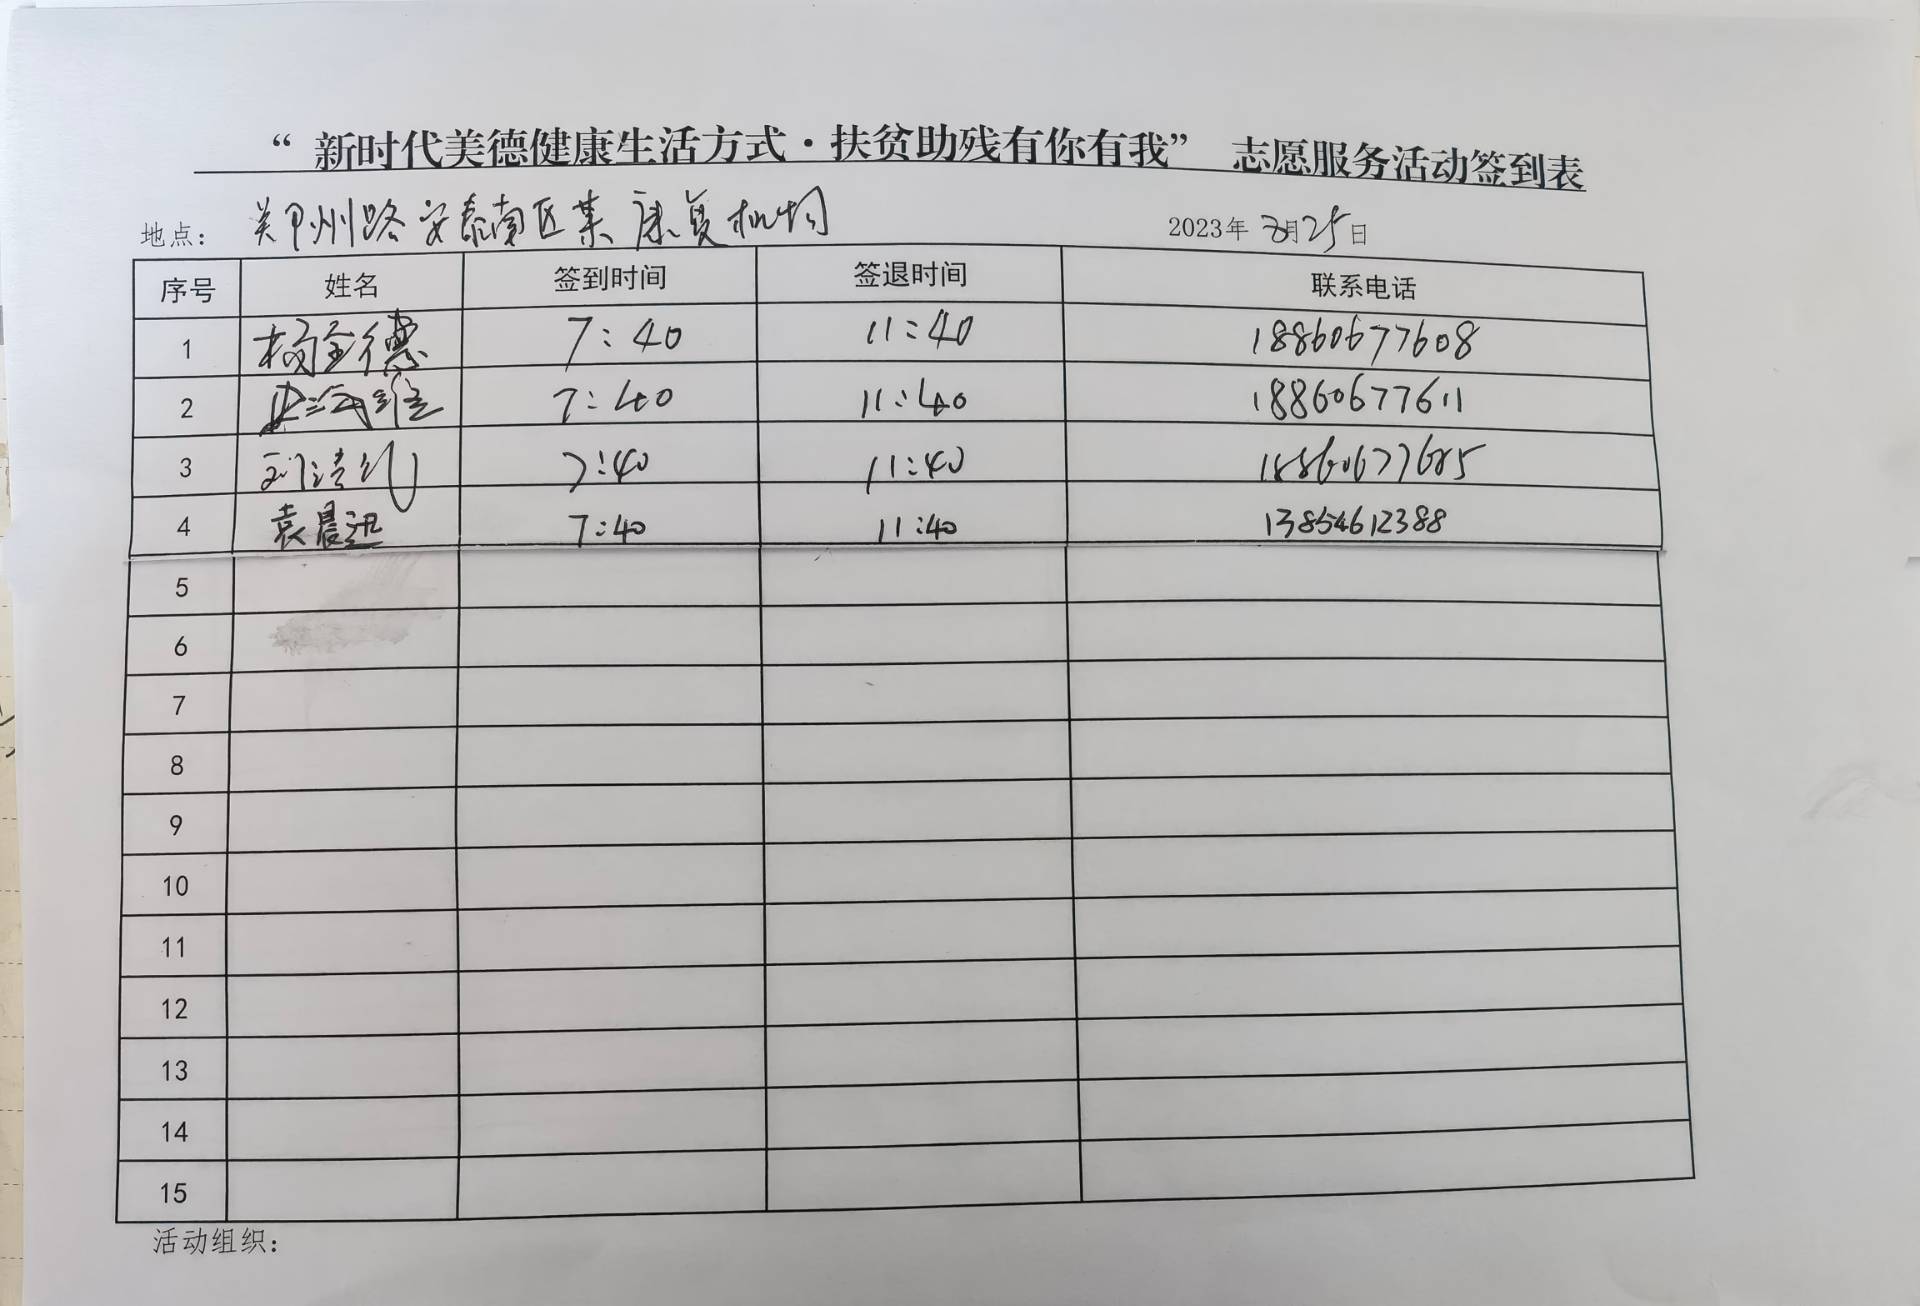 “ 新时代美德健康生活方式·扶贫助残有你有我” 志愿服务活动签到表
地点： 州路安泰南区某康复机构 2023年3月25日
序号 姓名 签到时间 签退时间 联系电话
1 杨金德 7:40 11:40 18860677608
2 7:40 11:40 18860677611
3 刘清 7:40 11:40 18860677685
4 袁晨迅 7:40 11:40 13854612388
5
6
7
8
9
10
11
12
13
14
15
活动组织：